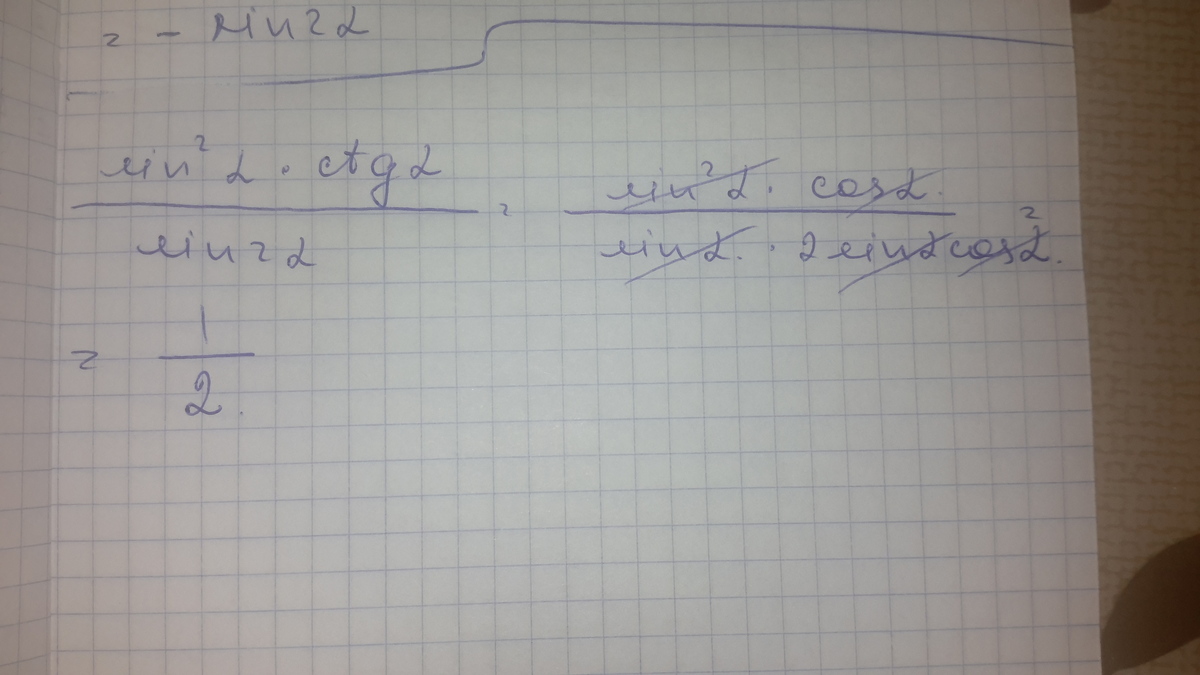 = - sin2α
sin²α · ctgα / sin2α = sin²α · cosα / sinα · 2sinαcosα =
= 1/2